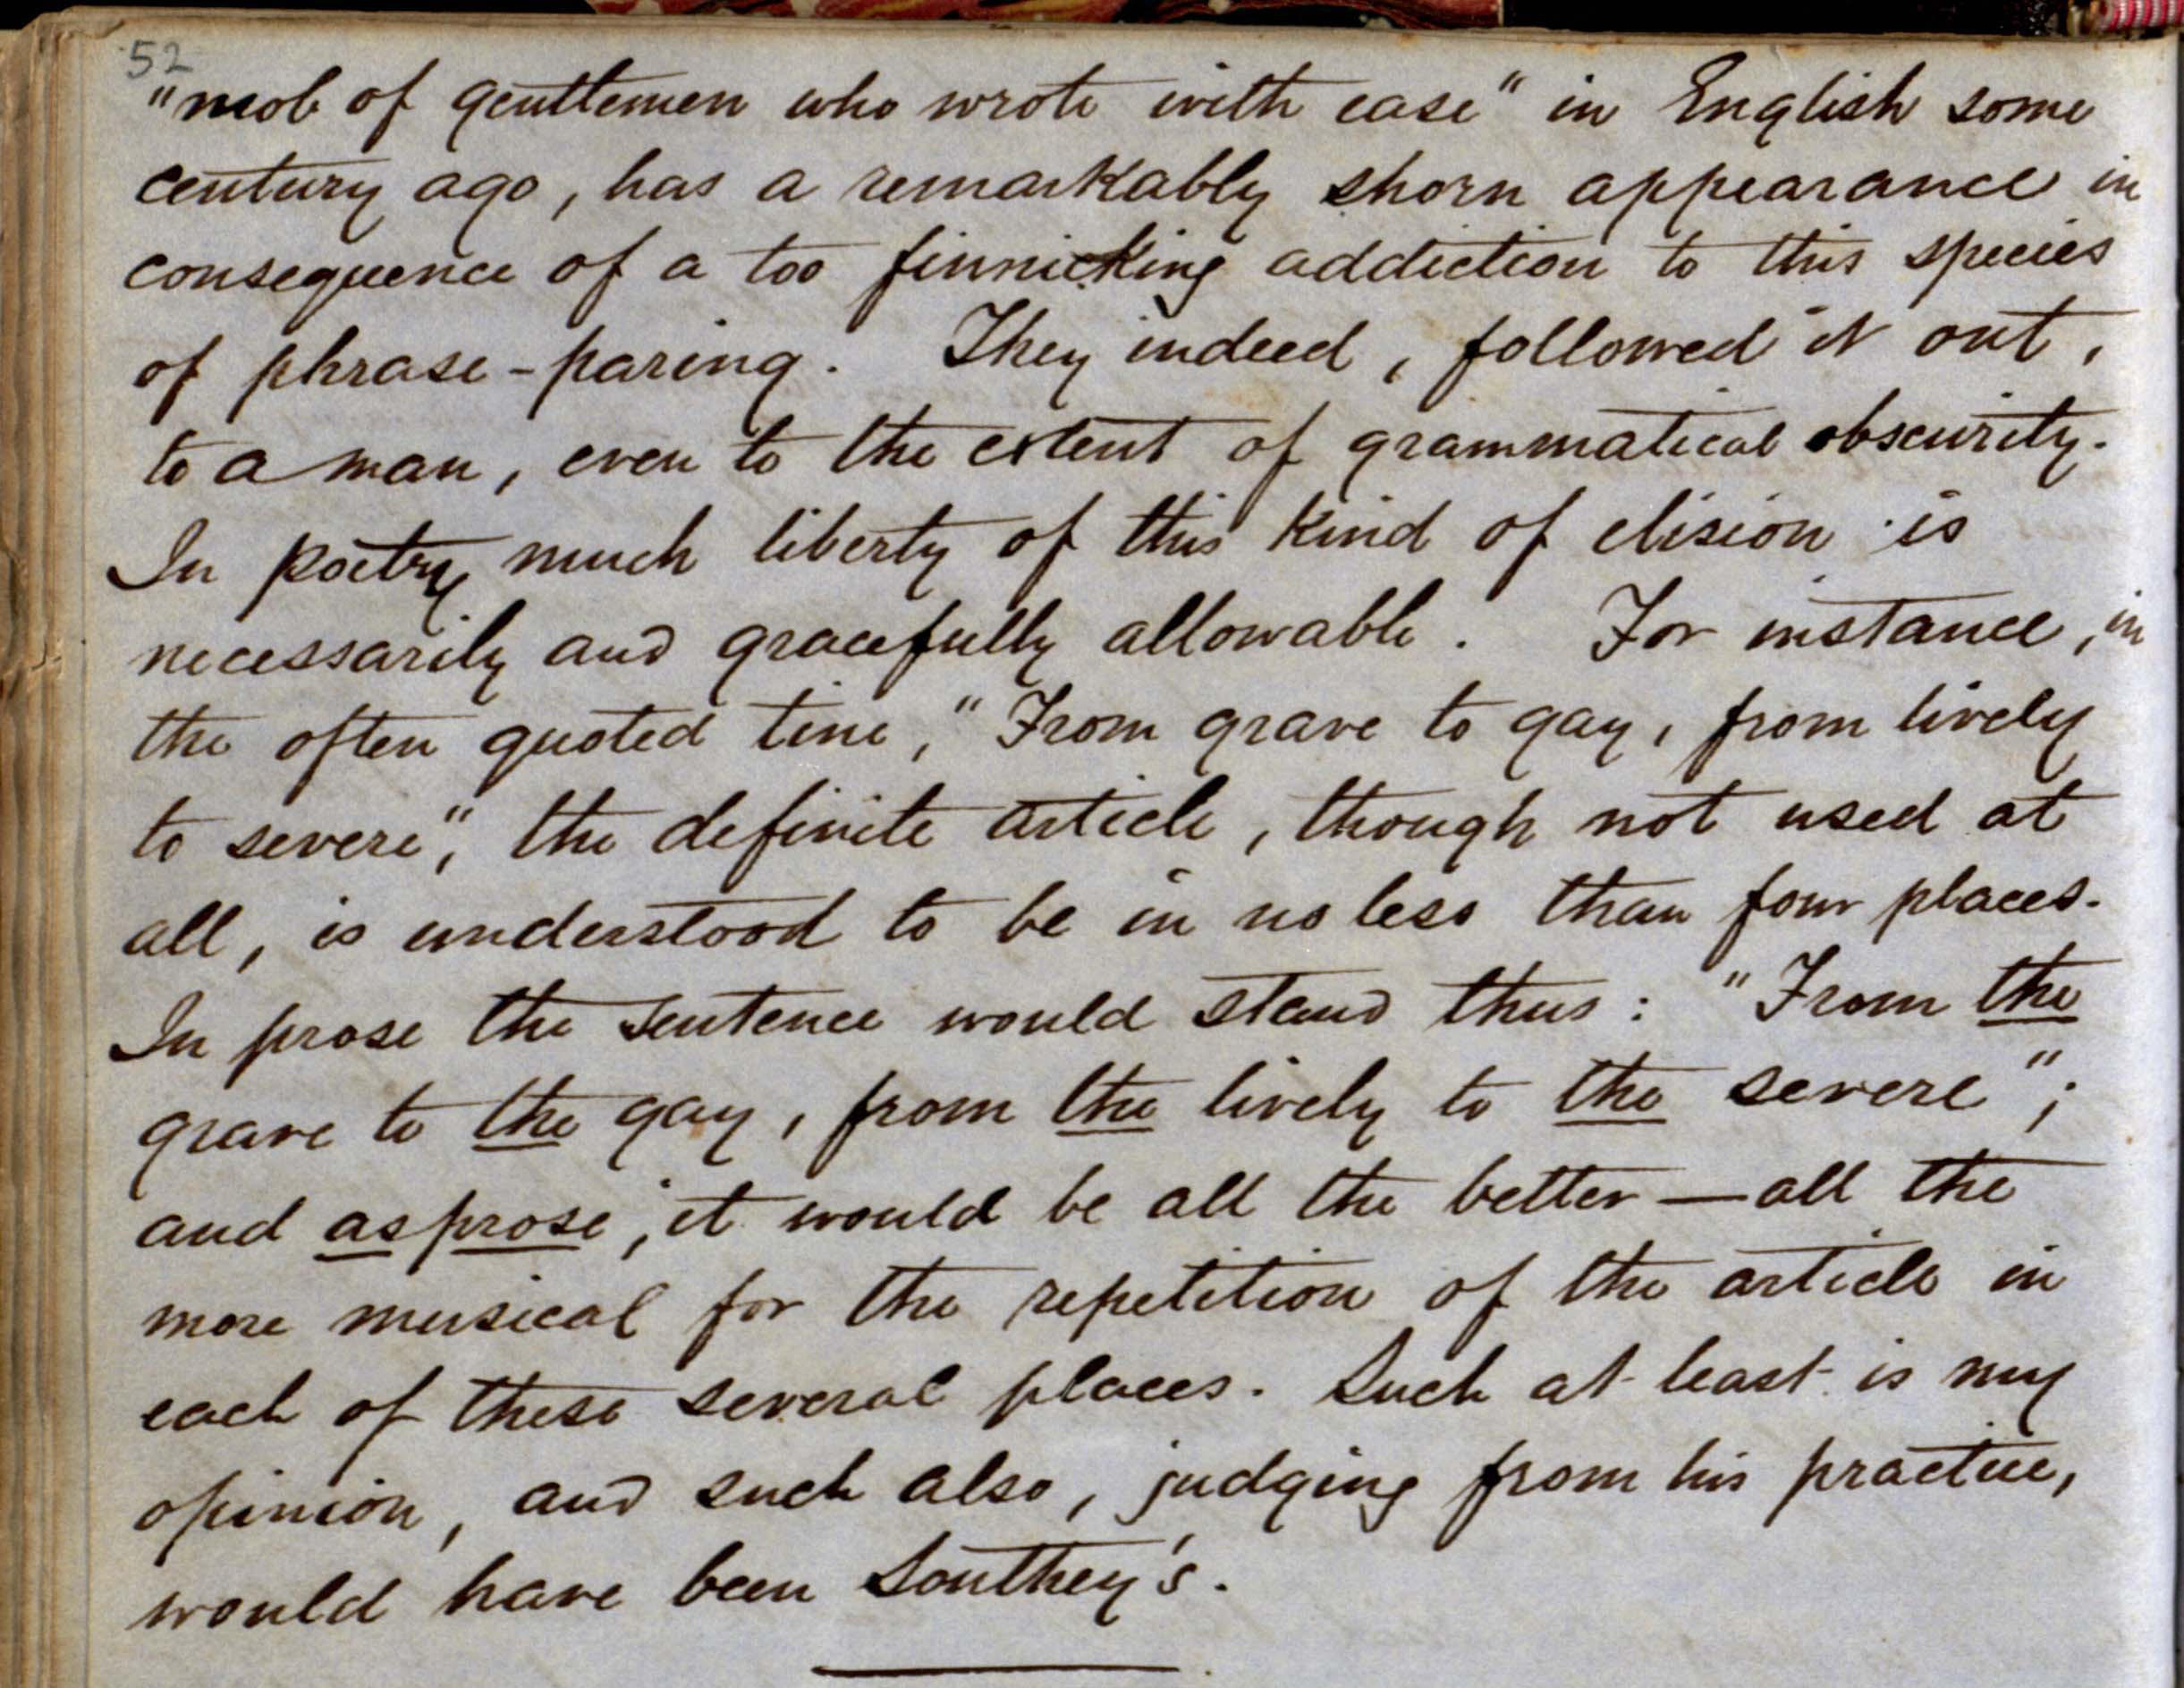 52
"mob of gentlemen who wrote with ease" in English some
century ago, has a remarkably shorn appearance in
consequence of a too finnicking addiction to this species
of phrase-paring. They indeed, followed it out,
to a man, even to the extent of grammatical obscurity.
In poetry much liberty of this kind of elision is
necessarily and gracefully allowable. For instance, in
the often quoted line, "From grave to gay, from lively
to severe", the definite article, though not used at
all, is understood to be in no less than four places.
In prose the sentence would stand thus: "From the
grave to the gay, from the lively to the severe";
and as prose, it would be all the better — all the
more musical for the repetition of the article in
each of these several places. Such at least is my
opinion, and such also, judging from his practice,
would have been Southey's.